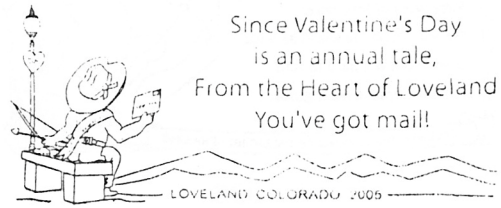 Since Valentine's Day
is an annual tale,
From the Heart of Loveland
You've got mail!
LOVELAND COLORADO 2005